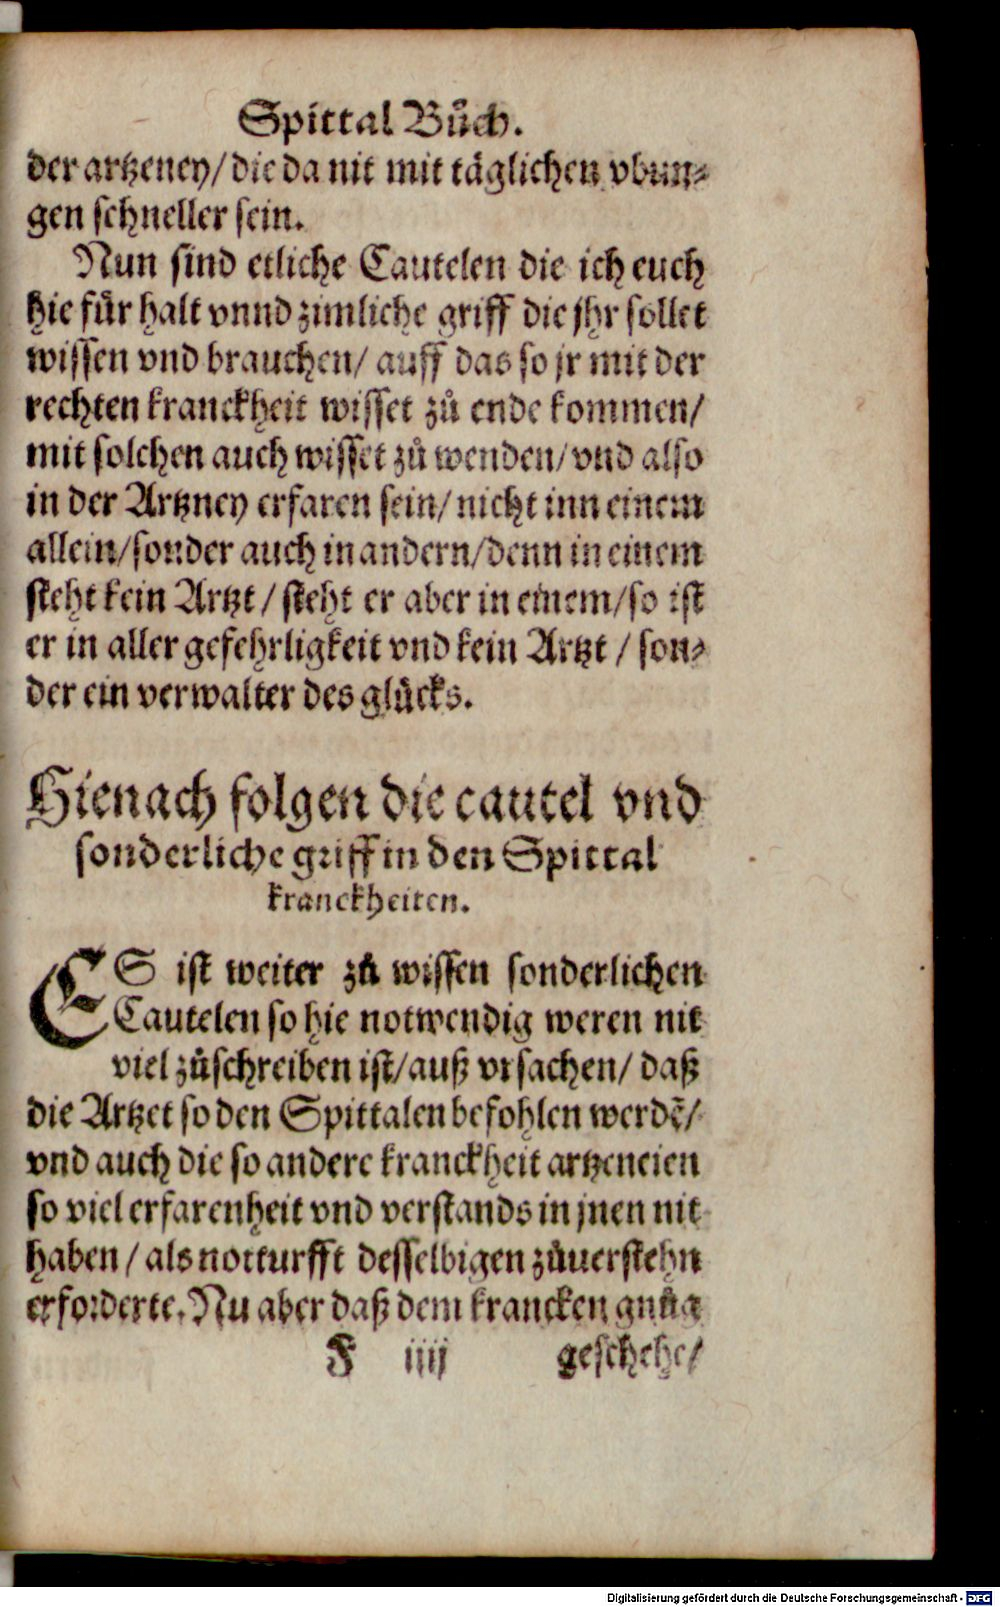 Spittal Bůch.
der artzeney/ die da nit mit täglichen vbun-
gen schneller sein.
Nun sind etliche Cautelen die ich euch
hie für halt vnnd zimliche griff die jhr sollet
wissen vnd brauchen/ auff das so jr mit der
rechten kranckheit wisset zů ende kommen/
mit solchen auch wisset zů wenden/ vnd also
in der Artzney erfaren sein/ nicht inn einem
allein/ sonder auch in andern/ denn in einem
steht kein Artzt / steht er aber in einem/ so ist
er in aller gefehrligkeit vnd kein Artzt / son-
der ein verwalter des glücks.
Hienach folgen die cautel vnd
sonderliche griff in den Spittal
kranckheiten.
ES ist weiter zů wissen sonderlichen
Cautelen so hie notwendig weren nit
viel zůschreiben ist/ auß vrsachen/ daß
die Artzet so den Spittalen befohlen werdē/
vnd auch die so andere kranckheit artzeneien
so viel erfarenheit vnd verstands in jnen nit
haben / als notturfft desselbigen zůuerstehn
erforderte. Nu aber daß dem krancken gnůg
F iiij geschehe/
Digitalisierung gefördert durch die Deutsche Forschungsgemeinschaft - DFG